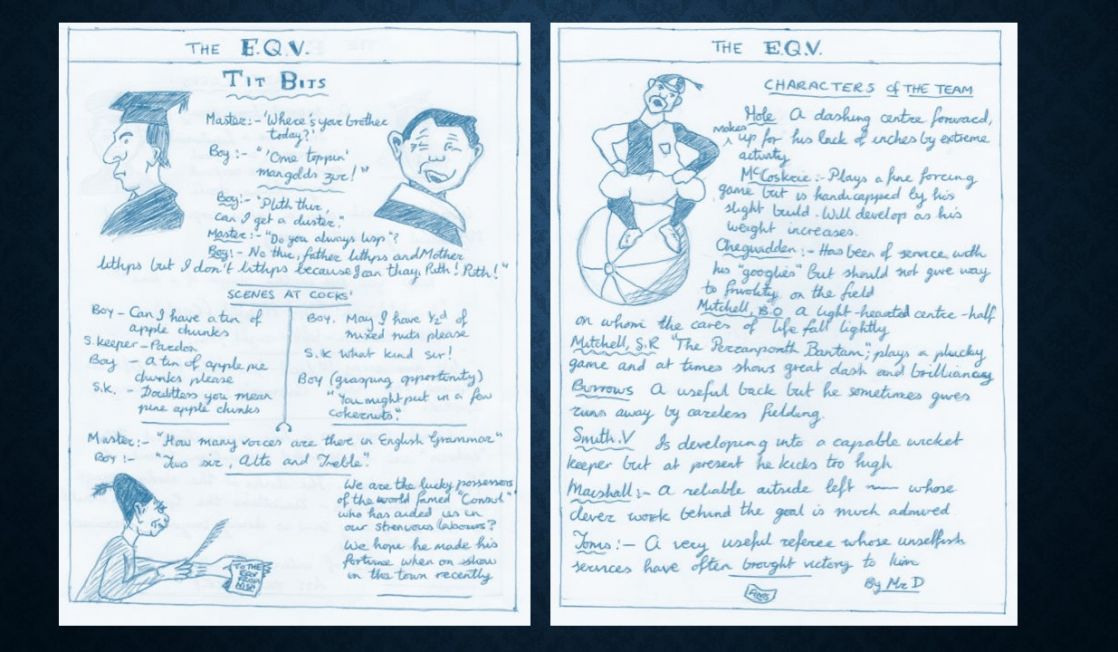 THE E.Q.V.
TIT BITS
Master:- "Where's your brother
today?"
Boy:- "'Ome toppin'
mangolds zur!"
Boy:- "Plith thir,
can I get a duster."
Master:- "Do you always lisp"?
Boy:- No thir, father lithps and Mother
lithps but I don't lithps because I can thay, Puth! Puth!"
SCENES AT COCKS'
Boy - Can I have a tin of
apple chunks
S.keeper - Pardon
Boy - A tin of apple pie
chunks please
S.K. - Doubtless you mean
pine apple chunks
Boy. May I have ½d of
mixed nuts please
S.K What kind sir!
Boy (grasping opportunity)
"You might put in a few
cokernuts."
Master:- "How many voices are there in English Grammar"
Boy:- "Two sir, Alto and Treble".
We are the lucky possessors
of the world famed "Consul"
who has aided us in
our strenuous labours?
We hope he made his
fortune when on show
in the town recently
TO THE
THE E.Q.V.
CHARACTERS of THE TEAM
Hole A dashing centre forward,
makes up for his lack of inches by extreme
activity
McCoskrie:- Plays a fine forcing
game but is handicapped by his
slight build. Will develop as his
weight increases.
Chegwidden:- Has been of service with
his "googlies" but should not give way
to frivolity on the field
Mitchell, B.O A light-hearted centre-half
on whom the cares of life fall lightly
Mitchell, S.R "The Perranporth Bantam", plays a plucky
game and at times shows great dash and brilliancy
Burrows A useful back but he sometimes gives
runs away by careless fielding.
Smith.V Is developing into a capable wicket
keeper but at present he kicks too high
Marshall:- A reliable outside left — whose
clever work behind the goal is much admired
Toms:- A very useful referee whose unselfish
services have often brought victory to him
By Mr D